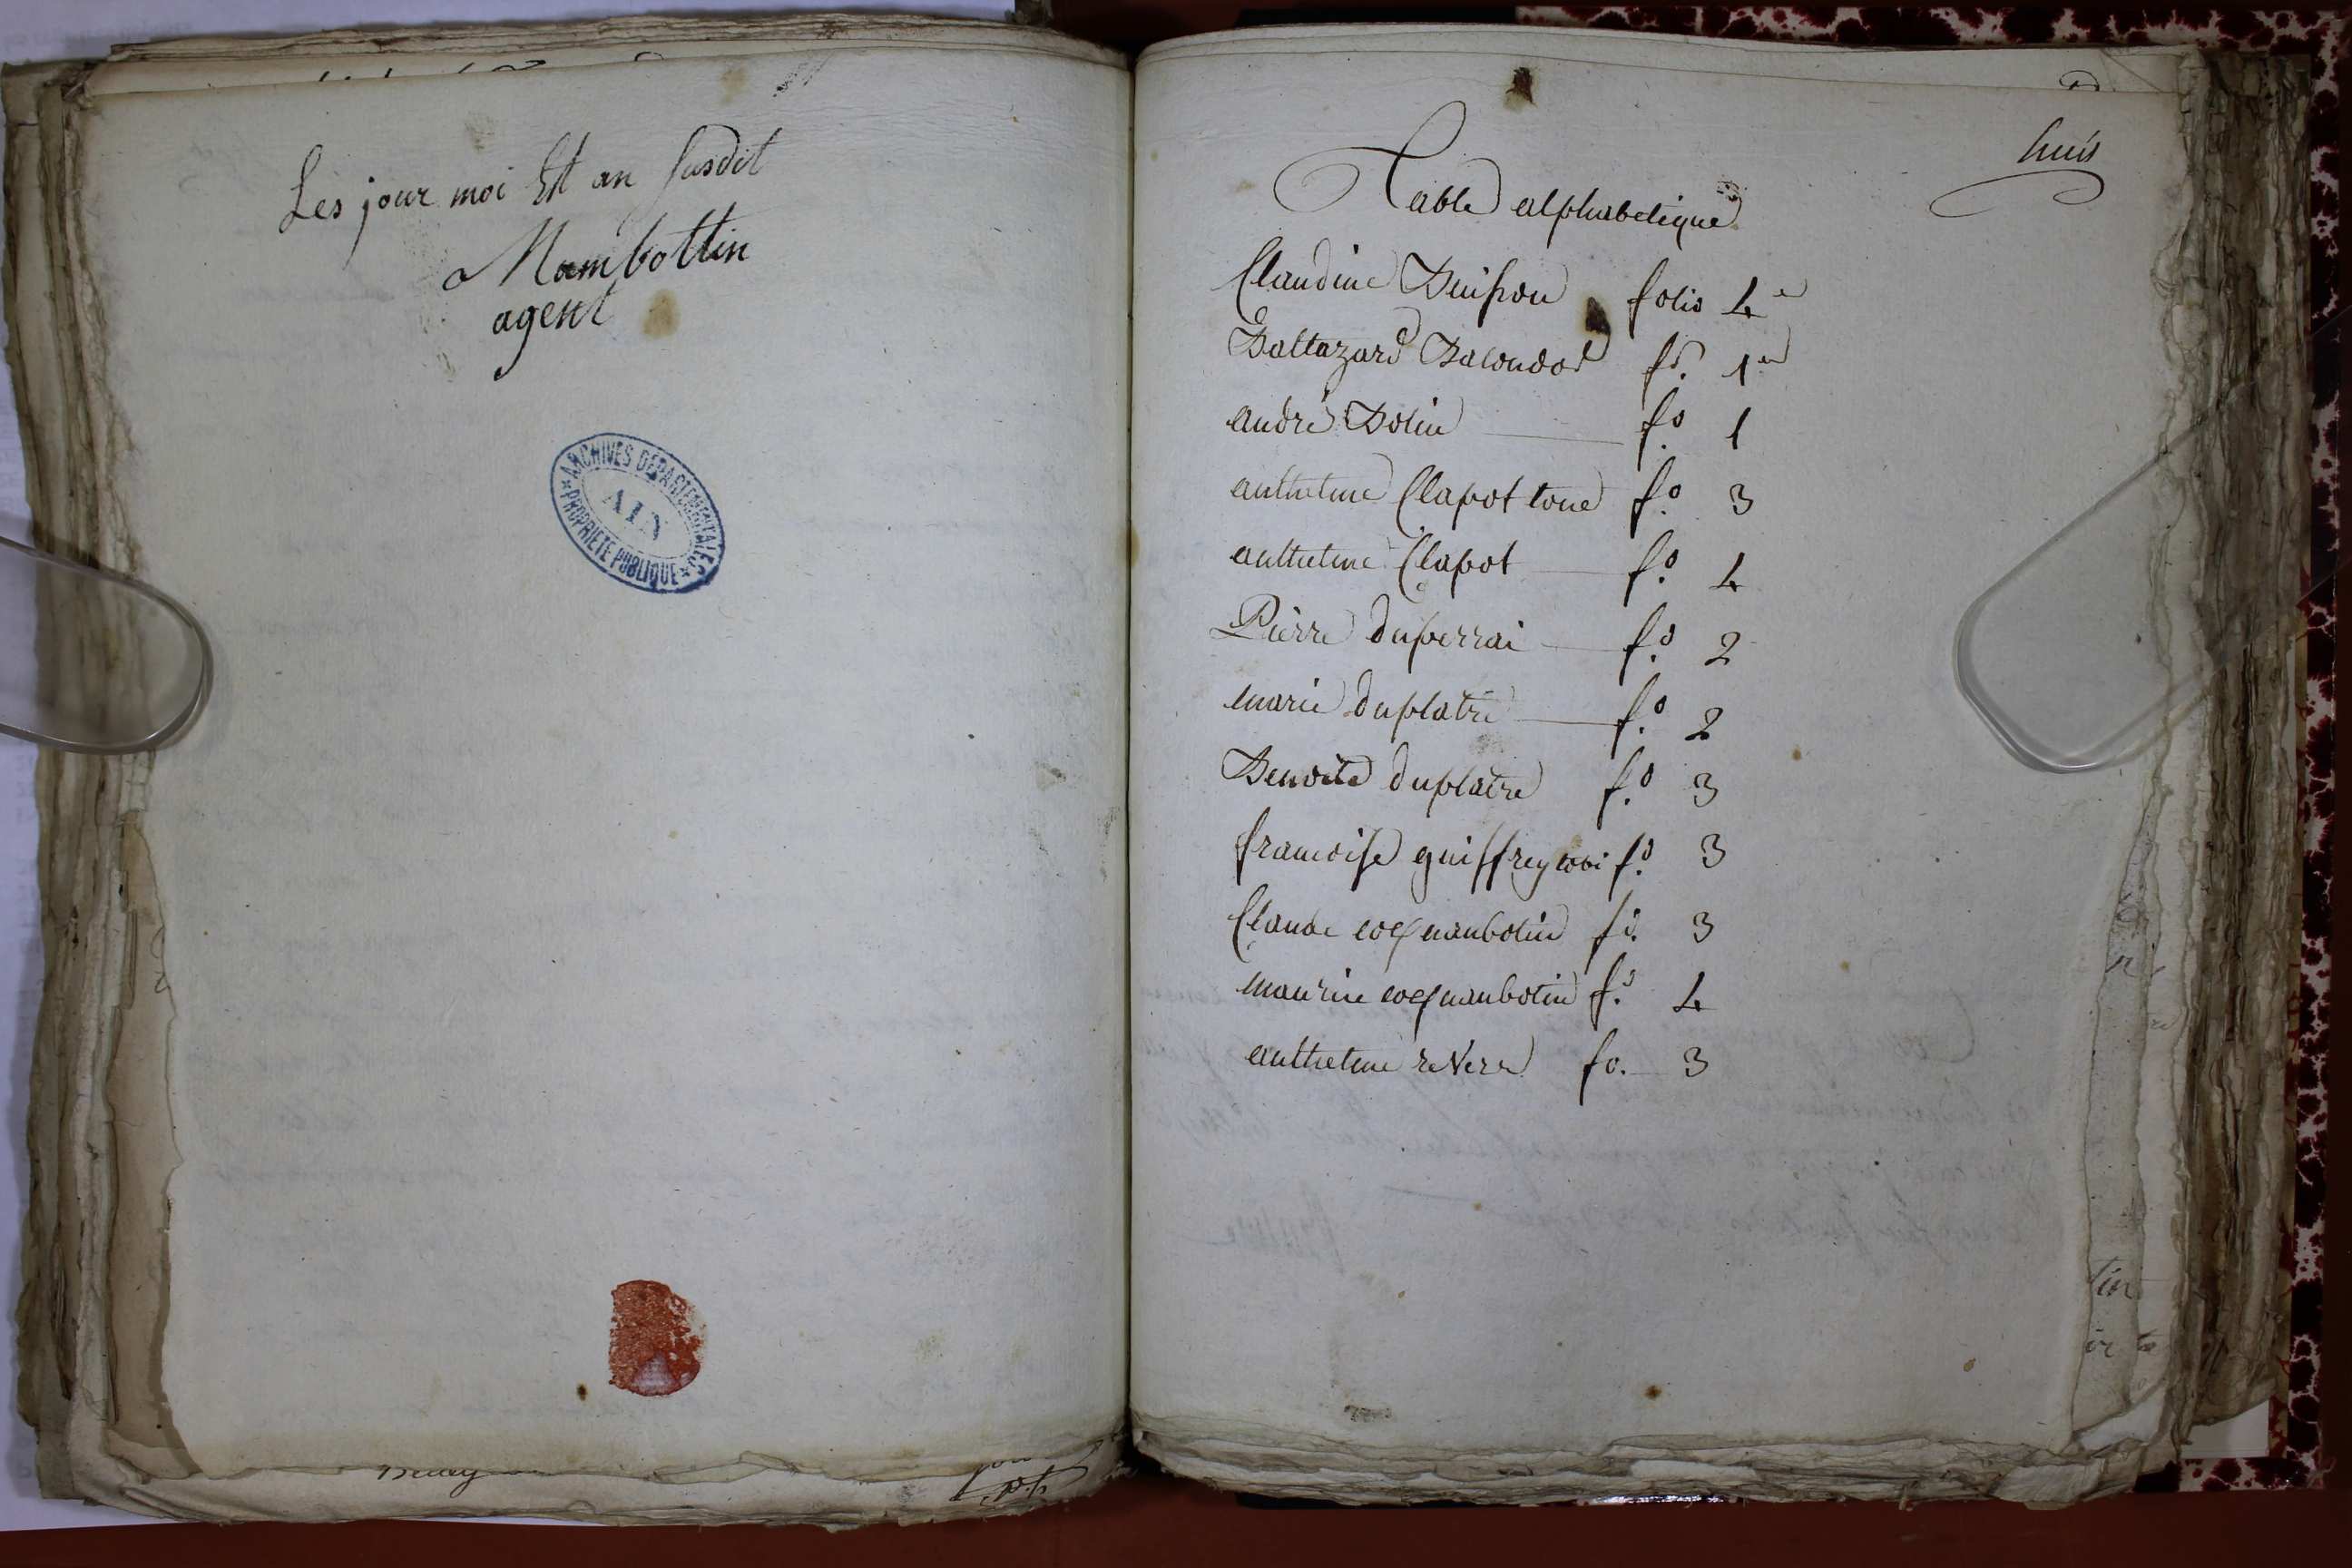 Les jour moi Et an susdit
Mambottin
agent
ARCHIVES DÉPARTEMENTALES
AIN
PROPRIÉTÉ PUBLIQUE
huit
Table alphabetique
Claudine Buisson folio 4e
Baltazard Bacondod fo. 1er
andré Bolin fo 1
anthelme Clapot tone fo 3
anthelme Clapot fo 4
Pierre duperrai fo 2
marie duplatre fo 2
Benoite duplatre fo 3
francoise guiffrey fo 3
Claude coq nanbotin fo. 3
maurice coq nanbotin fo 4
anthelme reverd fo. 3